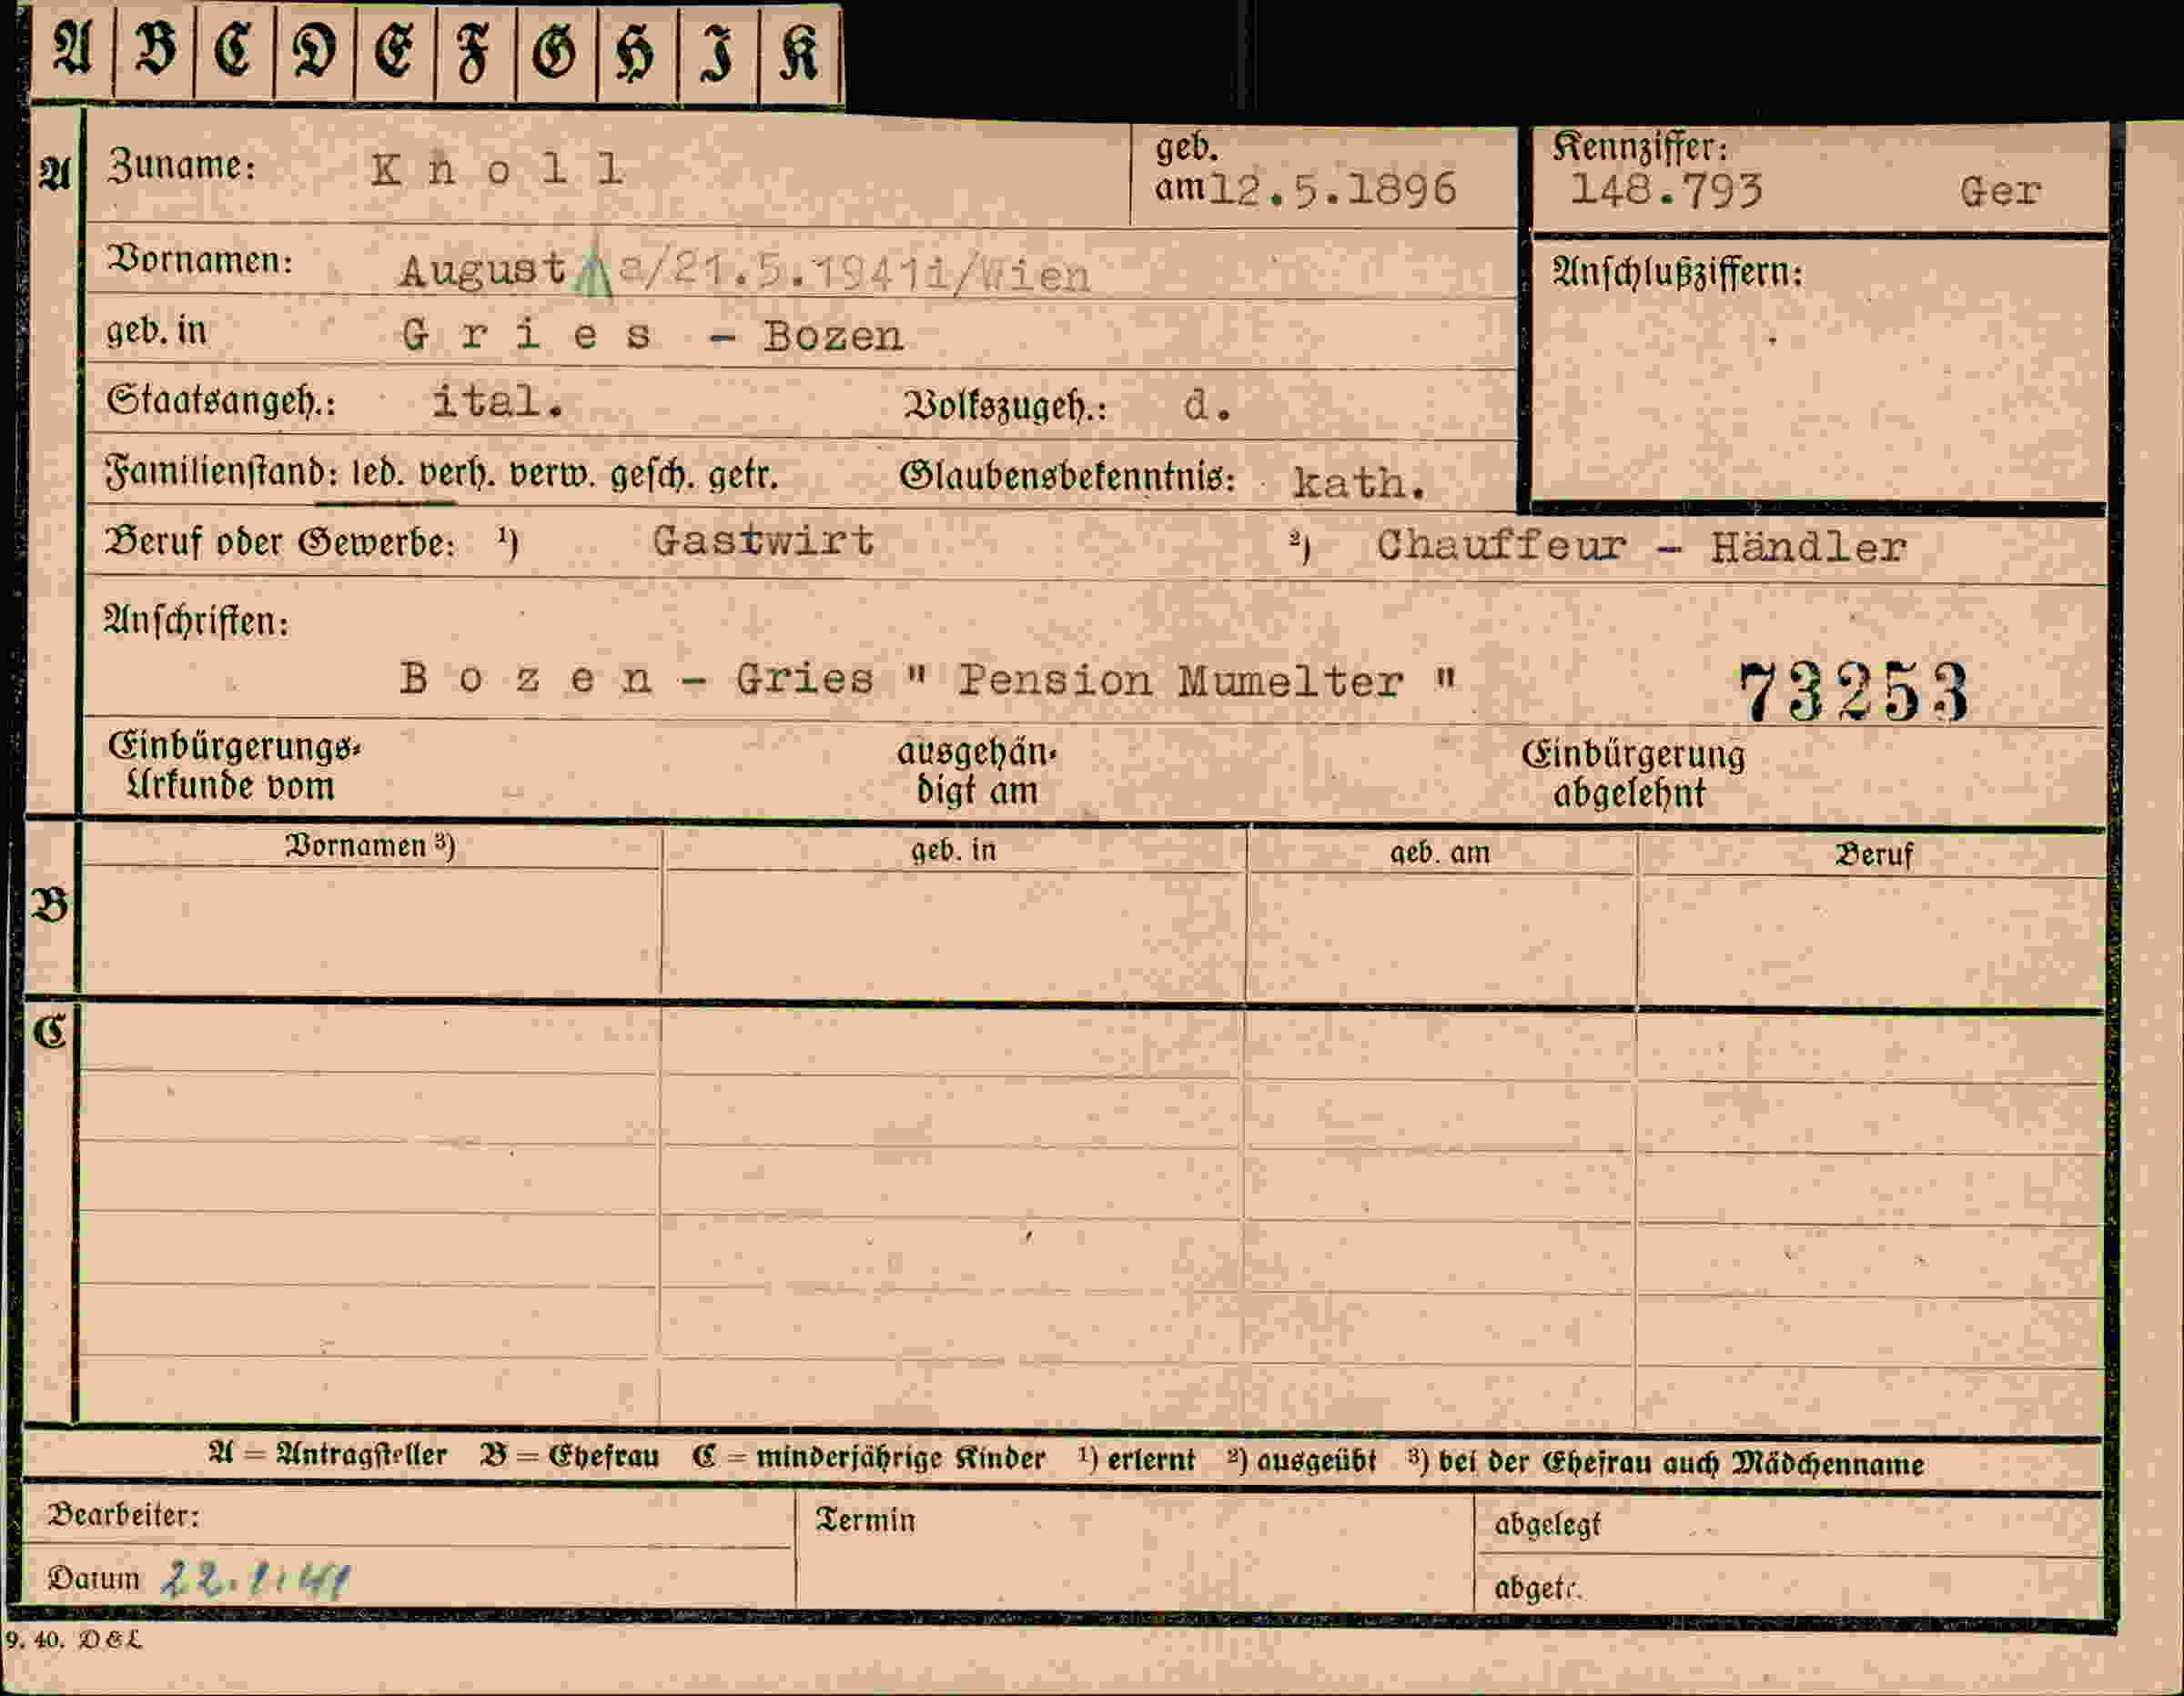 A B C D E F G H I K
A Zuname: K n o l l geb. am 12.5.1896 Kennziffer: 148.793 Ger
Vornamen: August a/21.5.1941i/Wien Anschlußziffern:
geb. in G r i e s - Bozen
Staatsangeh.: ital. Volkszugeh.: d.
Familienstand: led. verh. verw. gesch. getr. Glaubensbekenntnis: kath.
Beruf oder Gewerbe: ¹) Gastwirt ²) Chauffeur - Händler
Anschriften:
B o z e n - Gries " Pension Mumelter " 73253
Einbürgerungs- ausgehän- Einbürgerung
Urkunde vom digt am abgelehnt
Vornamen ³) geb. in geb. am Beruf
B
C
A = Antragsteller B = Ehefrau C = minderjährige Kinder ¹) erlernt ²) ausgeübt ³) bei der Ehefrau auch Mädchenname
Bearbeiter: Termin abgelegt
Datum 22.1.41 abgetr.
9. 40. D&L